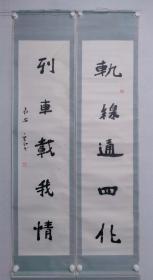 軌線通四化
列車載我情